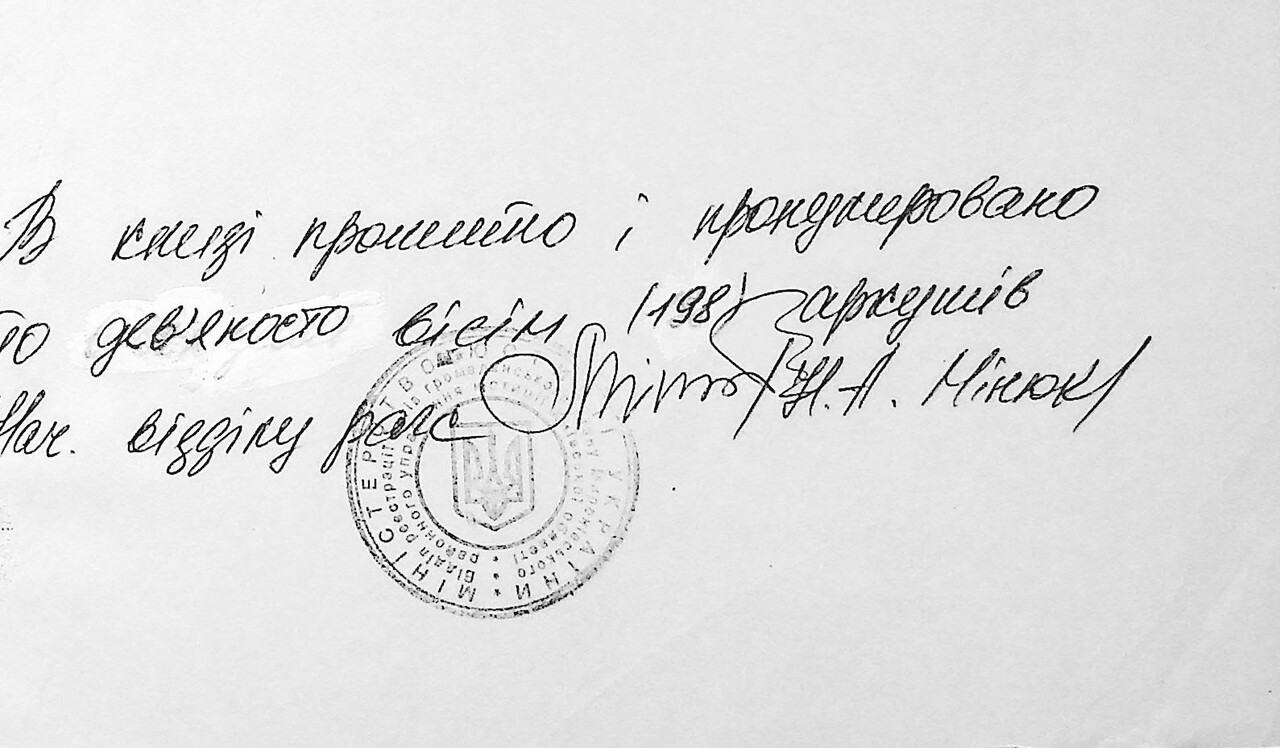 В книзі прошито і пронумеровано
то дев'яносто вісім (198) аркушів
Нач. відділу рагс Н.А. Мінюк
МІНІСТЕРСТВО ЮСТИЦІЇ УКРАЇНИ
Відділ реєстрації актів громадянського
районного управління юстиції
області